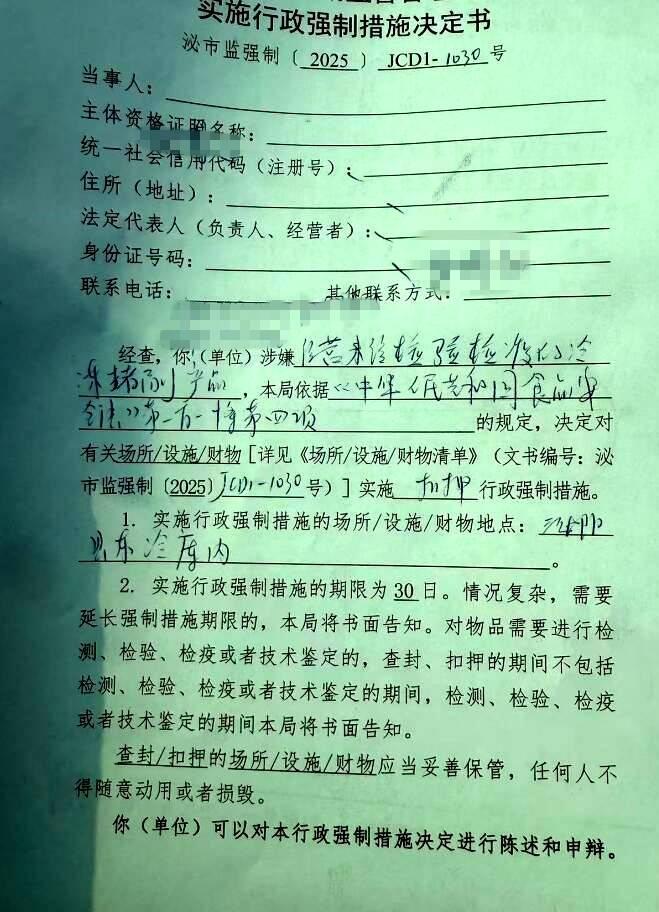 实施行政强制措施决定书
泌市监强制〔2025〕JCD1-1030号
当事人：
主体资格证照名称：
统一社会信用代码（注册号）：
住所（地址）：
法定代表人（负责人、经营者）：
身份证号码：
联系电话： 其他联系方式：
经查，你（单位）涉嫌经营未经检验检疫的冷
冻猪副产品，本局依据《中华人民共和国食品安
全法》第一百一十条第四项的规定，决定对
有关场所/设施/财物［详见《场所/设施/财物清单》（文书编号：泌
市监强制〔2025〕JCD1-1030号）］实施 扣押 行政强制措施。
1. 实施行政强制措施的场所/设施/财物地点：
冷库内。
2. 实施行政强制措施的期限为30日。情况复杂，需要
延长强制措施期限的，本局将书面告知。对物品需要进行检
测、检验、检疫或者技术鉴定的，查封、扣押的期间不包括
检测、检验、检疫或者技术鉴定的期间，检测、检验、检疫
或者技术鉴定的期间本局将书面告知。
查封/扣押的场所/设施/财物应当妥善保管，任何人不
得随意动用或者损毁。
你（单位）可以对本行政强制措施决定进行陈述和申辩。